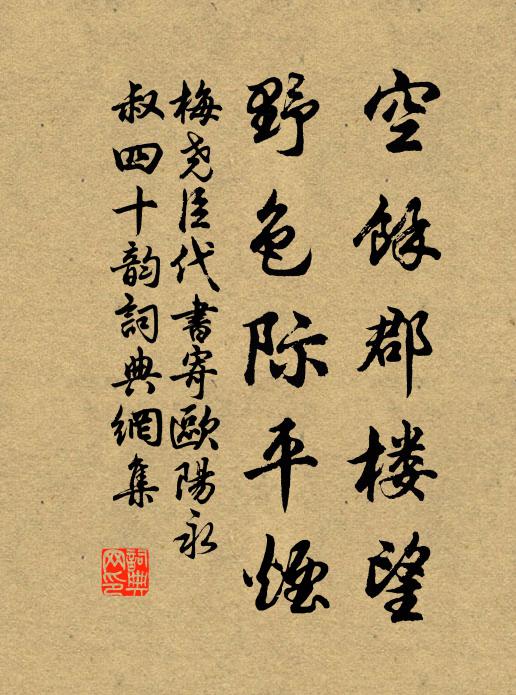 空餘郡楼望
野色际平煙
梅尧臣代書寄歐陽永
叔四十韵詞典網集
詞典
网印